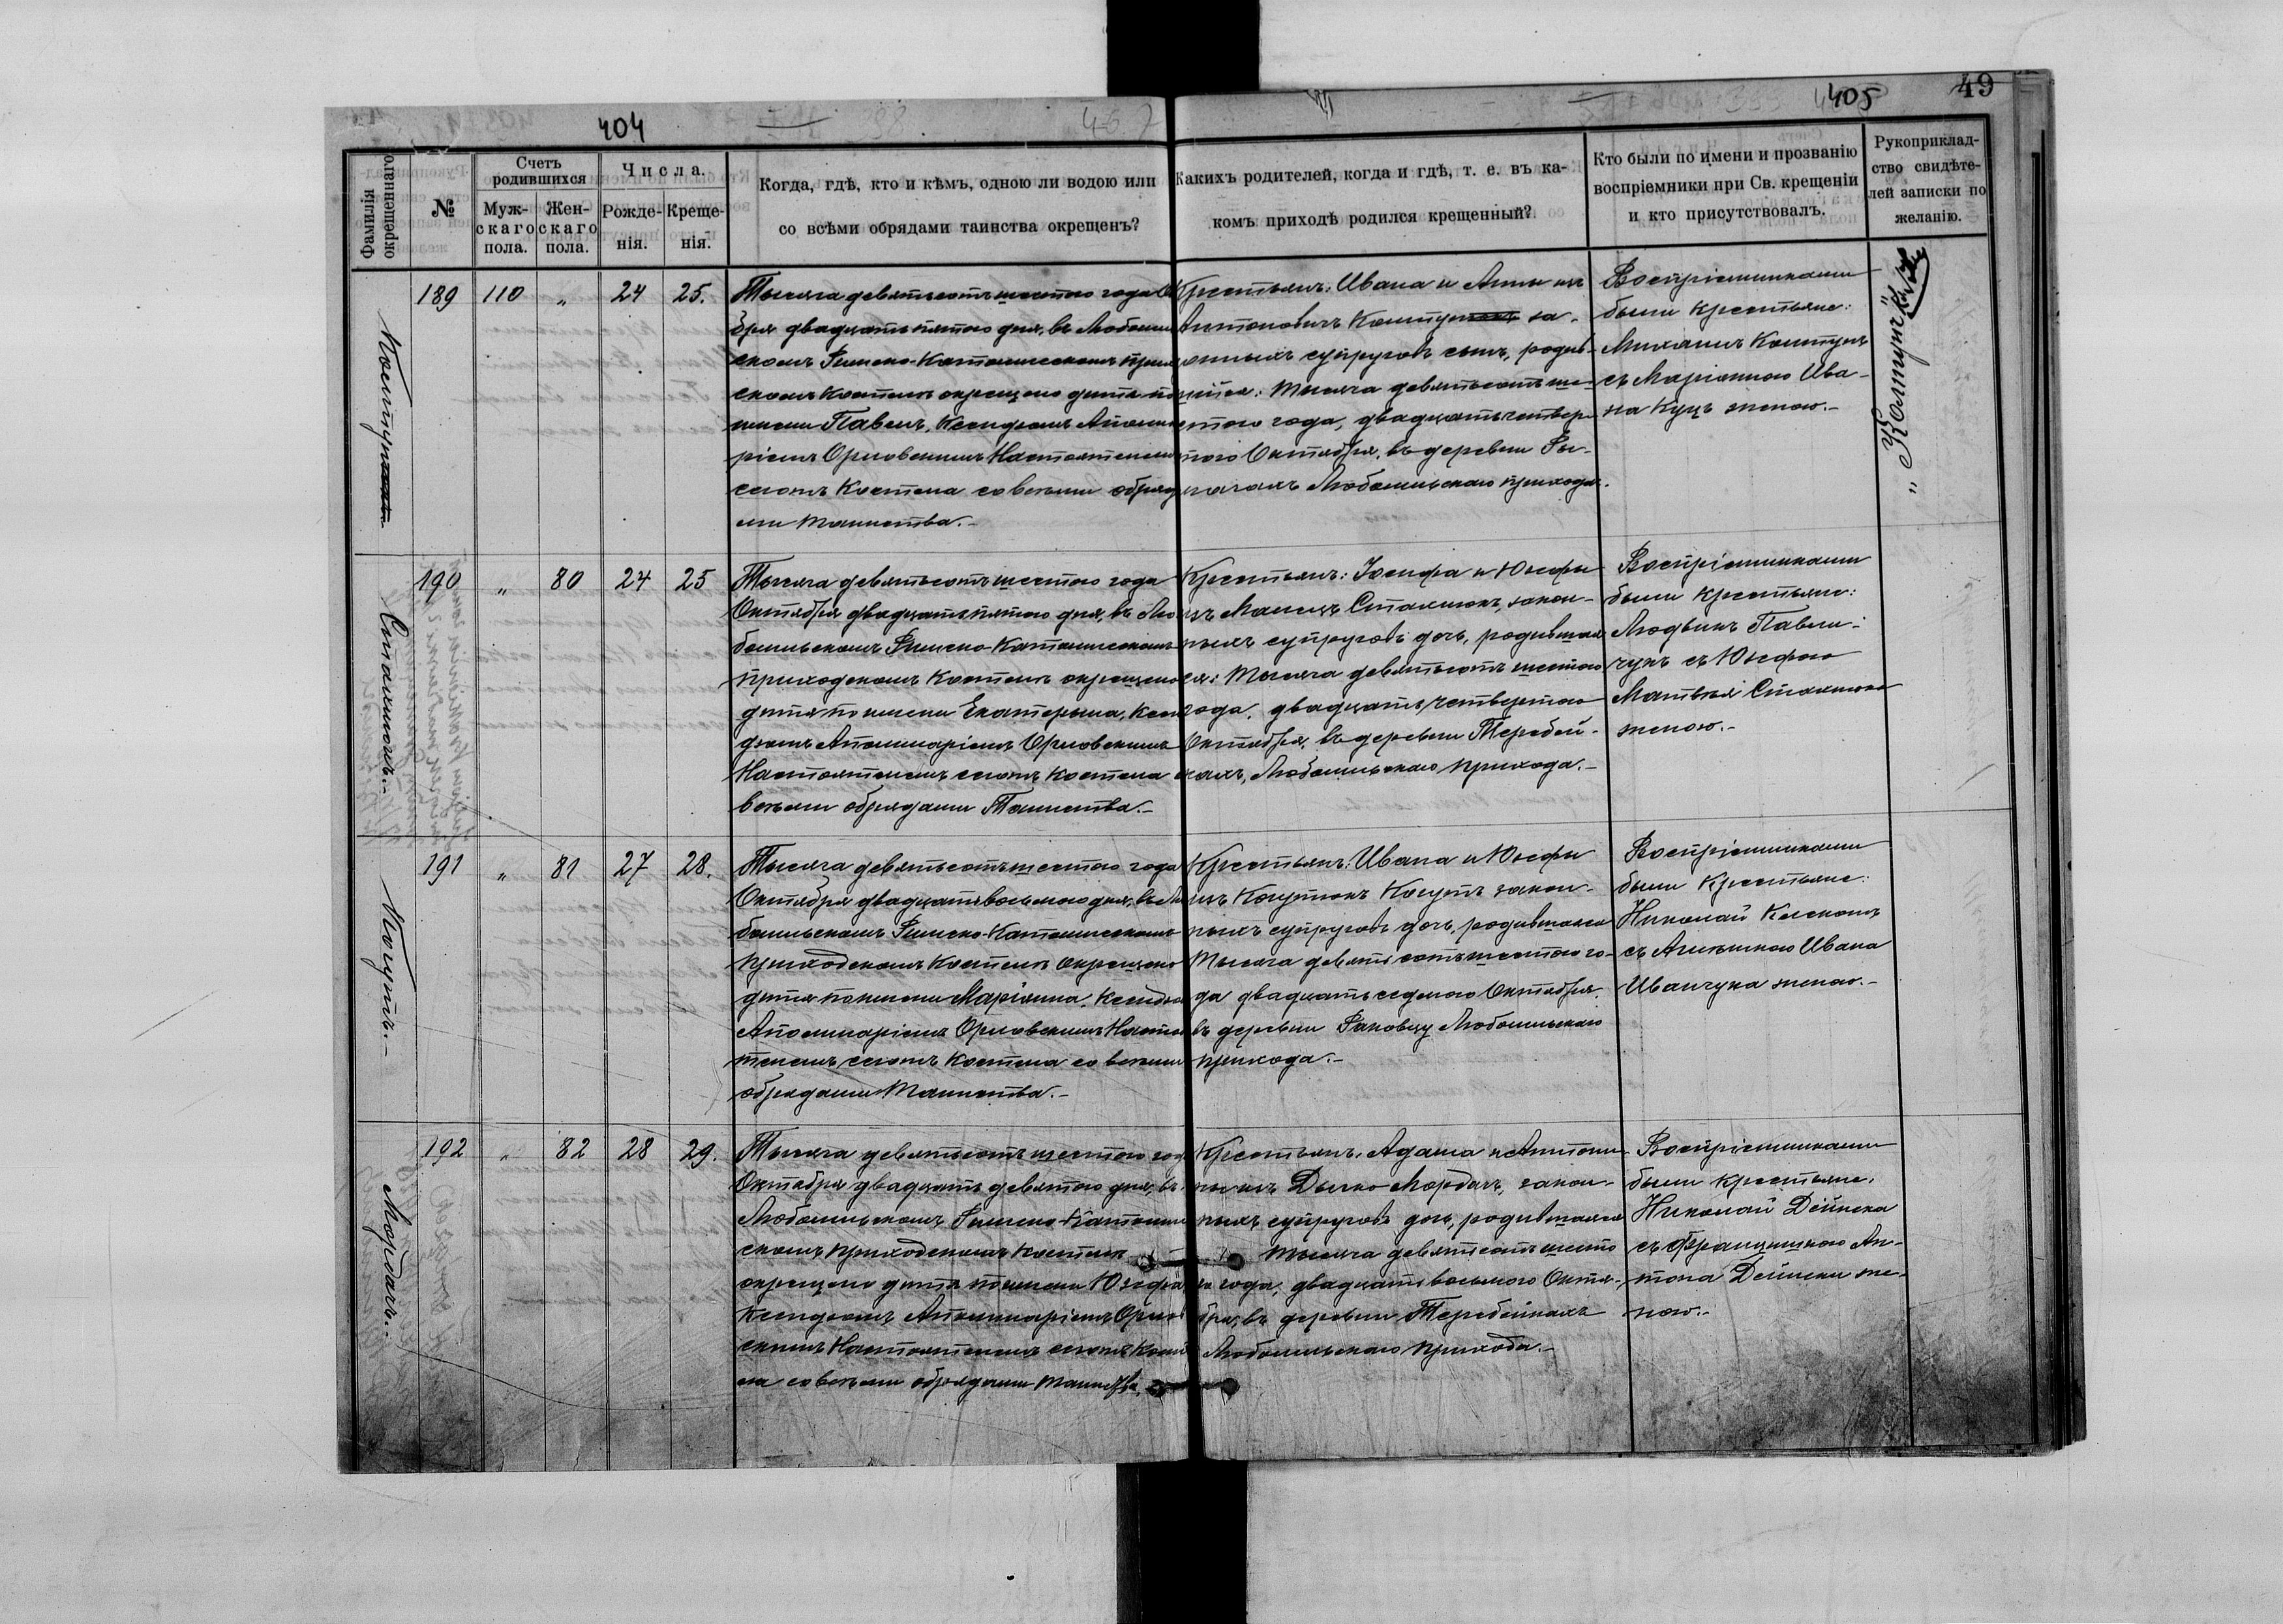 404
405
49
Фамилія окрещеннаго.
№
Счетъ родившихся
Муж-
скаго
пола.
Жен-
скаго
пола.
Числа.
Рожде-
нія.
Креще-
нія.
Когда, гдѣ, кто и кѣмъ, одною ли водою или
со всѣми обрядами таинства окрещенъ?
Какихъ родителей, когда и гдѣ, т. е. въ ка-
комъ приходѣ родился крещенный?
Кто были по имени и прозванію
воспріемники при Св. крещеніи
и кто присутствовалъ.
Рукоприклад-
ство свидѣте-
лей записки по
желанію.
189 110 „ 24 25.
Тысяча девятьсотъ шестого года
бря двадцать пятого дня, въ
скомъ Римско-Католическомъ
скомъ Костелѣ окрещено дитя
имени Павелъ, Ксендзомъ
ріемъ Орловскимъ Настоятелемъ
сегожъ Костела со всѣми
ми таинства.-
Крестьянъ: Ивана и Анны изъ
Антоновичъ за-
онныхъ супруговъ сынъ, родив-
шійся: тысяча девятьсотъ ше-
стого года, двадцать четвер-
того Октября, въ деревни
Любомльскаго прихода.
Воспріемниками
были крестьяне:
Михаилъ Колтунъ
съ Маріанною Ива-
на Куцъ женою.-
„Колтунъ"
190 „ 80 24 25
Стахнюкъ.-
Тысяча девятьсотъ шестого года
Октября двадцать пятого дня, въ Лю
бомльскомъ Римско-Католическомъ
приходскомъ Костелѣ окрещено
дитя по имени Екатерына, Ксен
дзомъ Аполинаріемъ Орловскимъ
Настоятелемъ сегожъ Костела
всѣми обрядами Таинства.-
Крестьянъ: Іосифа и Юзефы
изъ Стахнюкъ, закон-
ныхъ супруговъ дочь, родившая
ся: тысяча девятьсотъ шестого
года, двадцать четвертого
Октября, въ деревни Теребей-
кахъ, Любомльскаго прихода.-
Воспріемниками
были крестьяне:
Людвикъ Павлю-
чукъ съ Юзефою
Матвѣя Стахнюка
женою.-
191 „ 81 27 28.
Когутъ.-
Тысяча девятьсотъ шестого года
Октября двадцать восьмого дня, въ Лю
бомльскомъ Римско-Католическомъ
приходскомъ Костелѣ окрещено
дитя по имени Маріанна, Ксендзо
Аполинаріемъ Орловскимъ Настоя
телемъ сегожъ Костела со всѣми
обрядами Таинства.-
Крестьянъ: Ивана и Юзефы
изъ Когутъ закон-
ныхъ супруговъ дочь, родившаяся
тысяча девятьсотъ шестого го-
да двадцать седмого Октября,
въ деревни Раковцу Любомльскаго
прихода.-
Воспріемниками
были Крестьяне:
Николай
съ Ивана
Иванчука женою.-
192 „ 82 28 29.
Мордачъ.-
Тысяча девятьсотъ шестого год
Октября двадцать девятого дня, въ
Любомльскомъ Римско-Католиче
скомъ приходскомъ Костелѣ
окрещено дитя по имени Юзефа
Ксендзомъ Аполинаріемъ Орлов
скимъ Настоятелемъ сегожъ Косте
ла со всѣми обрядами таинства.
Крестьянъ: Адама и Антони-
ны изъ Дычко Мордачъ, закон-
ныхъ супруговъ дочь, родившаяся
тысяча девятьсотъ шесто
го года, двадцать восьмого Октя-
бря, въ деревни Теребейкахъ
Любомльскаго прихода.-
Воспріемниками
были крестьяне:
Николай Дейнека
съ Францишкою Ан-
тона Дейнеки же-
ною.-